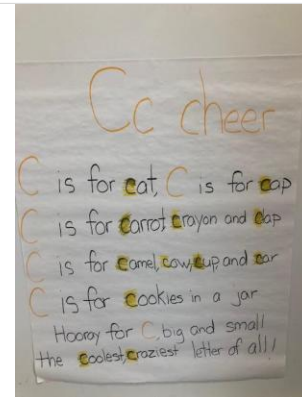 Cc cheer
C is for cat, C is for cap
C is for carrot, crayon and clap
C is for camel, cow, cup, and car
C is for cookies in a jar
Hooray for C, big and small
the coolest, craziest letter of all!